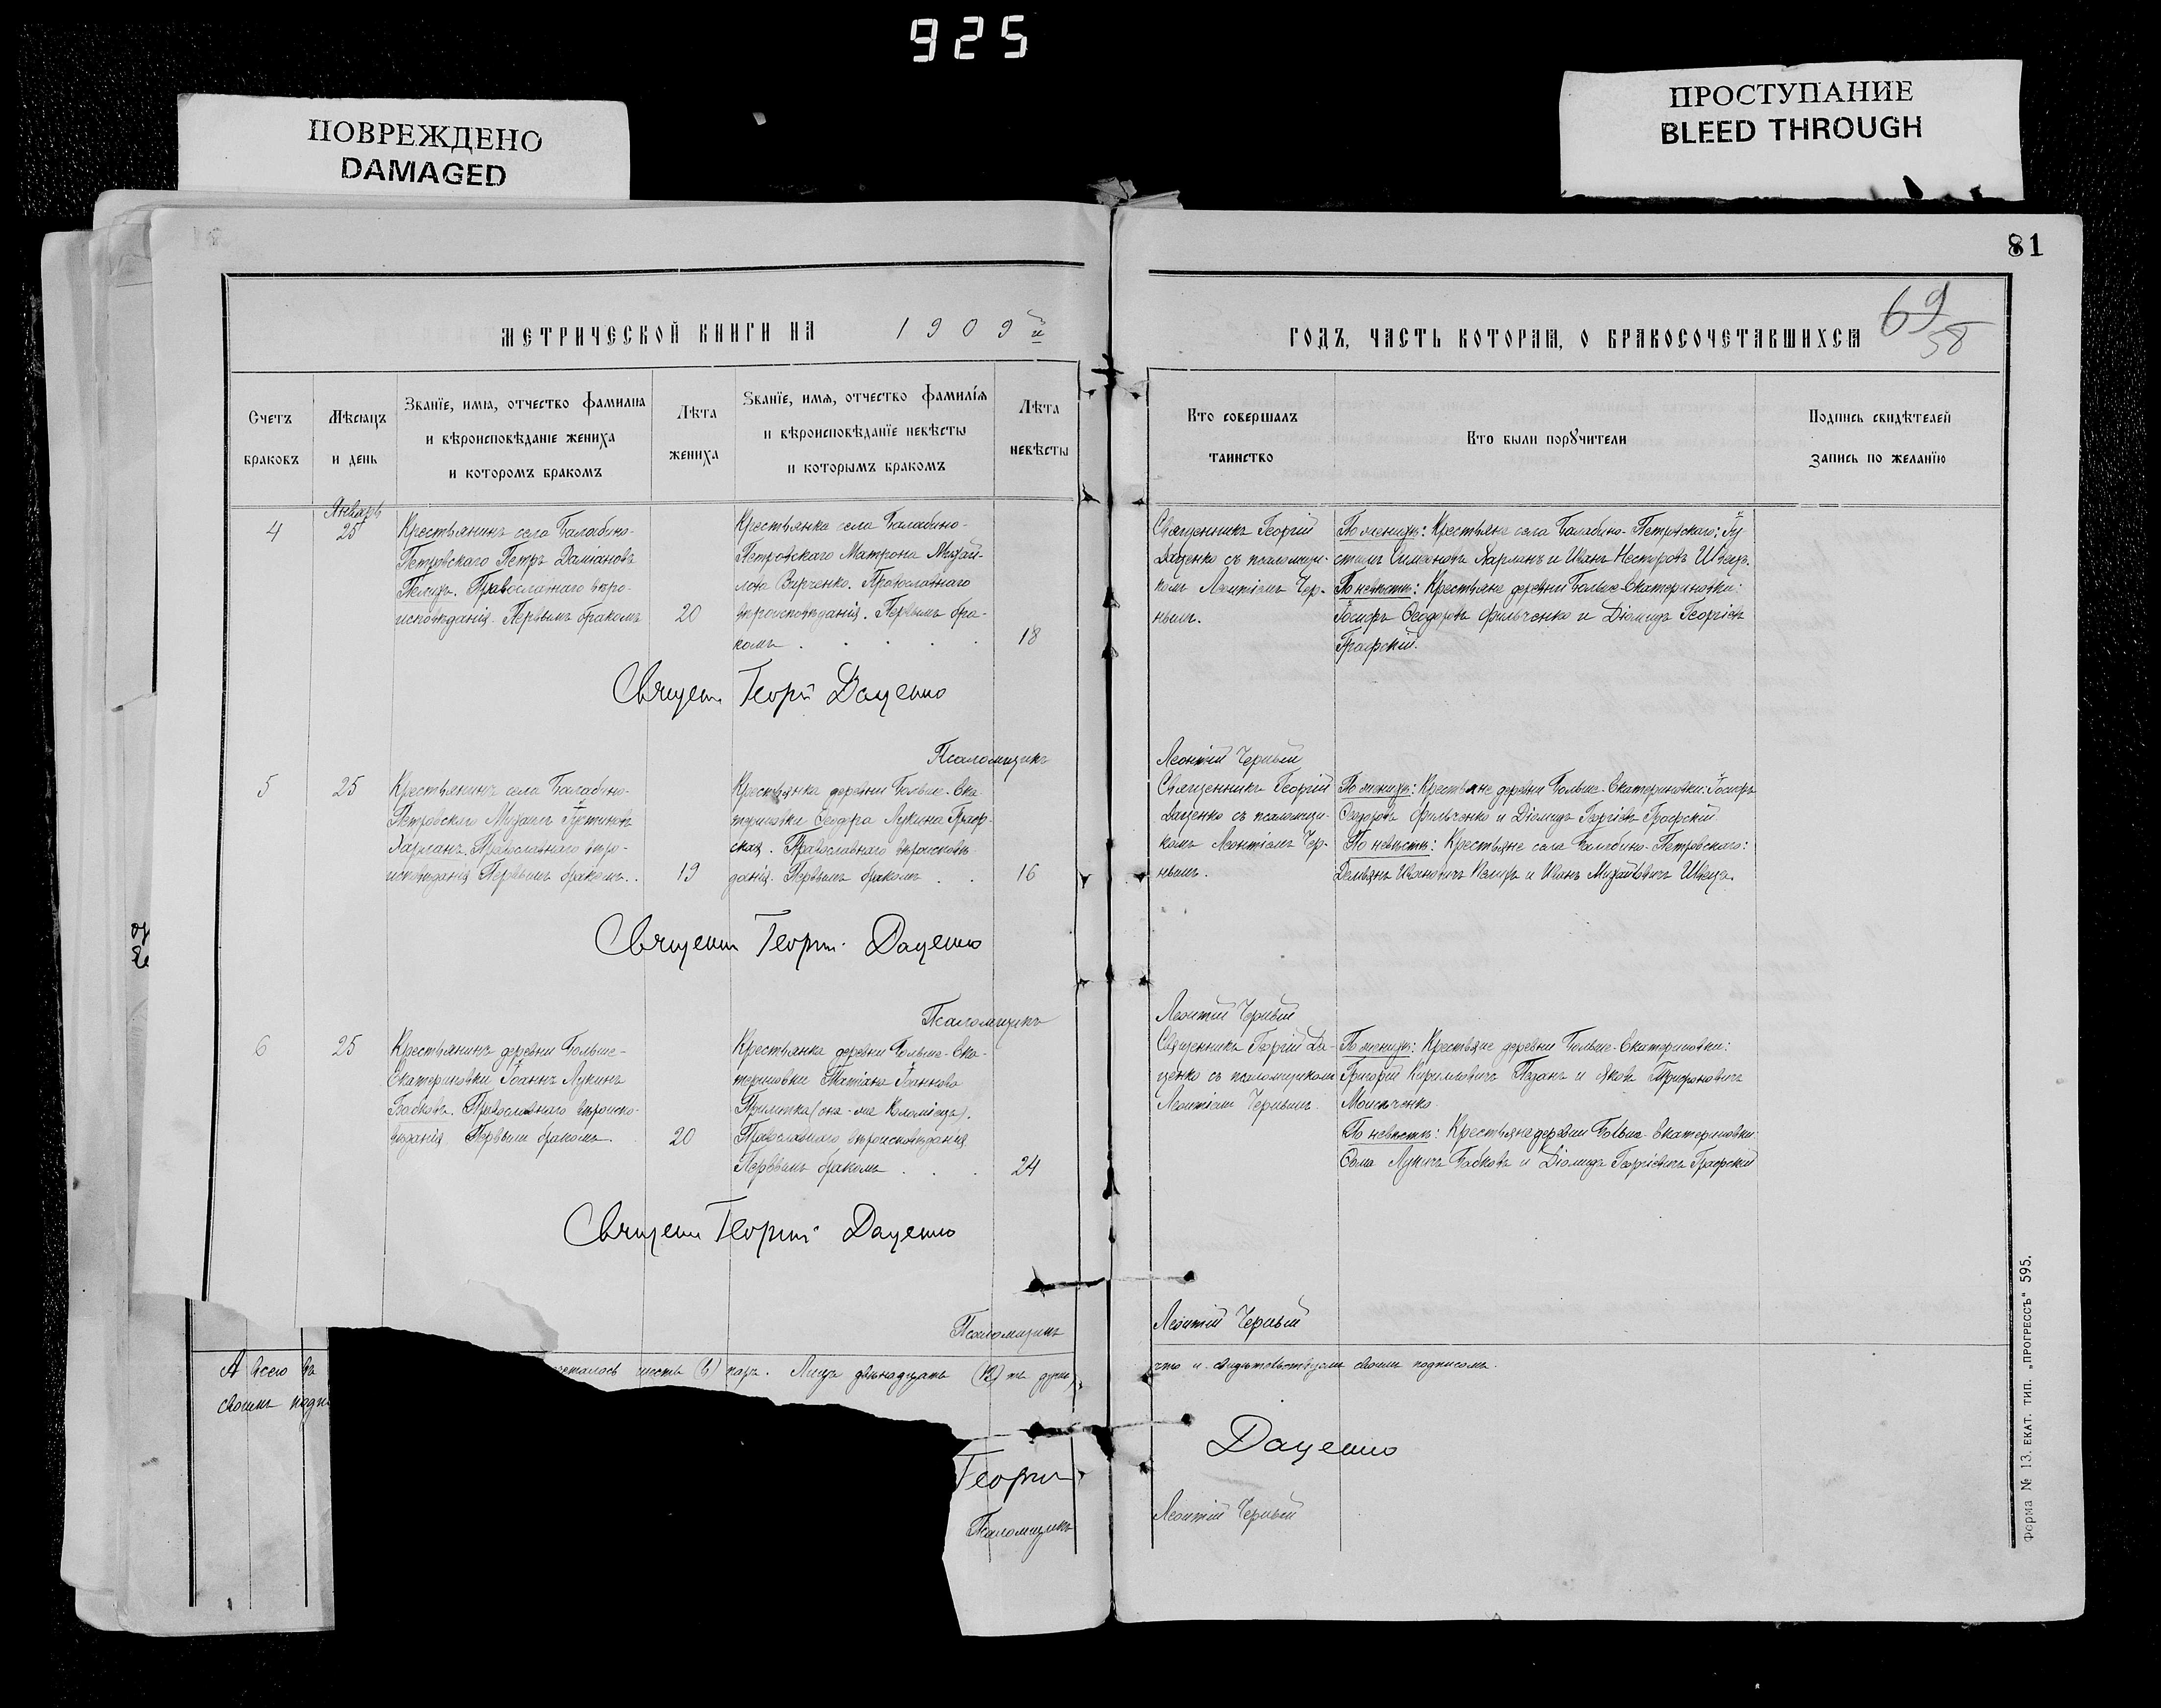 925
ПОВРЕЖДЕНО
DAMAGED
ПРОСТУПАНИЕ
BLEED THROUGH
81
69
58
МЕТРИЧЕСКОЙ КНИГИ НА 1909 й
ГОДЪ, ЧАСТЬ КОТОРАЯ, О БРАКОСОЧЕТАВШИХСЯ
Счетъ
браковъ
Мѣсяцъ
и день
Званїе, имя, отчество фамилия
и вѣроисповѣданіе жениха
и которомъ бракомъ
Лѣта
жениха
Званїе, имя, отчество фамилїя
и вѣроисповѣданїе невѣсты
и которымъ бракомъ
Лѣта
невѣсты
Кто совершалъ
таинство
Кто были порꙋчители
Подпись свидѣтелей
запись по желанїю
Январь
4
25
Крестьянинъ села Балабино-
Петровскаго Петръ Даміановъ
Пелихъ. Православнаго вѣро-
исповѣданія. Первымъ бракомъ
20
Крестьянка села Балабино-
Петровскаго Матрона Михай-
лова Вирченко. Православнаго
вѣроисповѣданія. Первымъ бра-
комъ
18
Священникъ Георгій
Даценко съ псаломщи-
комъ Леонтіемъ Чер-
нымъ.
По женихѣ: Крестьяне села Балабино-Петровскаго: Іу-
стинъ Симеоновъ Харланъ и Иванъ Несторовъ Швецъ.
По невѣстѣ: Крестьяне деревни Больше-Екатериновки:
Іосифъ Ѳеодоровъ Фильченко и Діомидъ Георгіевъ
Графскій.
Священ. Георгій Даценко
Псаломщикъ
Леонтій Черный
5
25
Крестьянинъ села Балабино-
Петровскаго Михаилъ Іустиновъ
Харланъ. Православнаго вѣро-
исповѣданія Первымъ бракомъ.
19
Крестьянка деревни Больше-Ека-
териновки Ѳеодора Лукина Граф-
ская. Православнаго вѣроисповѣ-
данія. Первымъ бракомъ
16
Священникъ Георгій
Даценко съ псаломщи-
комъ Леонтіемъ Чер-
нымъ.
По женихѣ: Крестьяне деревни Больше-Екатериновки: Іосифъ
Ѳеодоровъ Фильченко и Діомидъ Георгіевъ Графскій
По невѣстѣ: Крестьяне села Балабино-Петровскаго:
Демьянъ Ивановичъ Пелихъ и Иванъ Михайловичъ Швецъ.
Священ Георгій Даценко
Псаломщикъ
Леонтій Черный
6
25
Крестьянинъ деревни Больше-
Екатериновки Іоаннъ Лукинъ
Бабковъ. Православнаго вѣроиспо-
вѣданія Первымъ бракомъ
20
Крестьянка деревни Больше-Ека-
териновки Татіана Іоаннова
Прилипка (она-же Коломіецъ).
Православнаго вѣроисповѣданія
Первымъ бракомъ
24
Священникъ Георгій Да-
ценко съ псаломщикомъ
Леонтіемъ Чернымъ
По женихѣ: Крестьяне деревни Больше-Екатериновки:
Григорій Кирилловичъ Пазанъ и Яковъ Трифоновичъ
Моисѣченко
По невѣстѣ: Крестьяне деревни Больше-Екатериновки
Ѳома Лукичъ Бабковъ и Діомидъ Георгіевичъ Графскій
Священ Георгій Даценко
Псаломщикъ
Леонтій Черный
А всего въ
своимъ подпи
четалось шесть (6) паръ. Лицъ двѣнадцать (12)
что и свидѣтельствуемъ своимъ подписомъ.
Георгій
Даценко
Псаломщикъ
Леонтій Черный
Форма № 13. ЕКАТ. ТИП. „ПРОГРЕССЪ" 595.